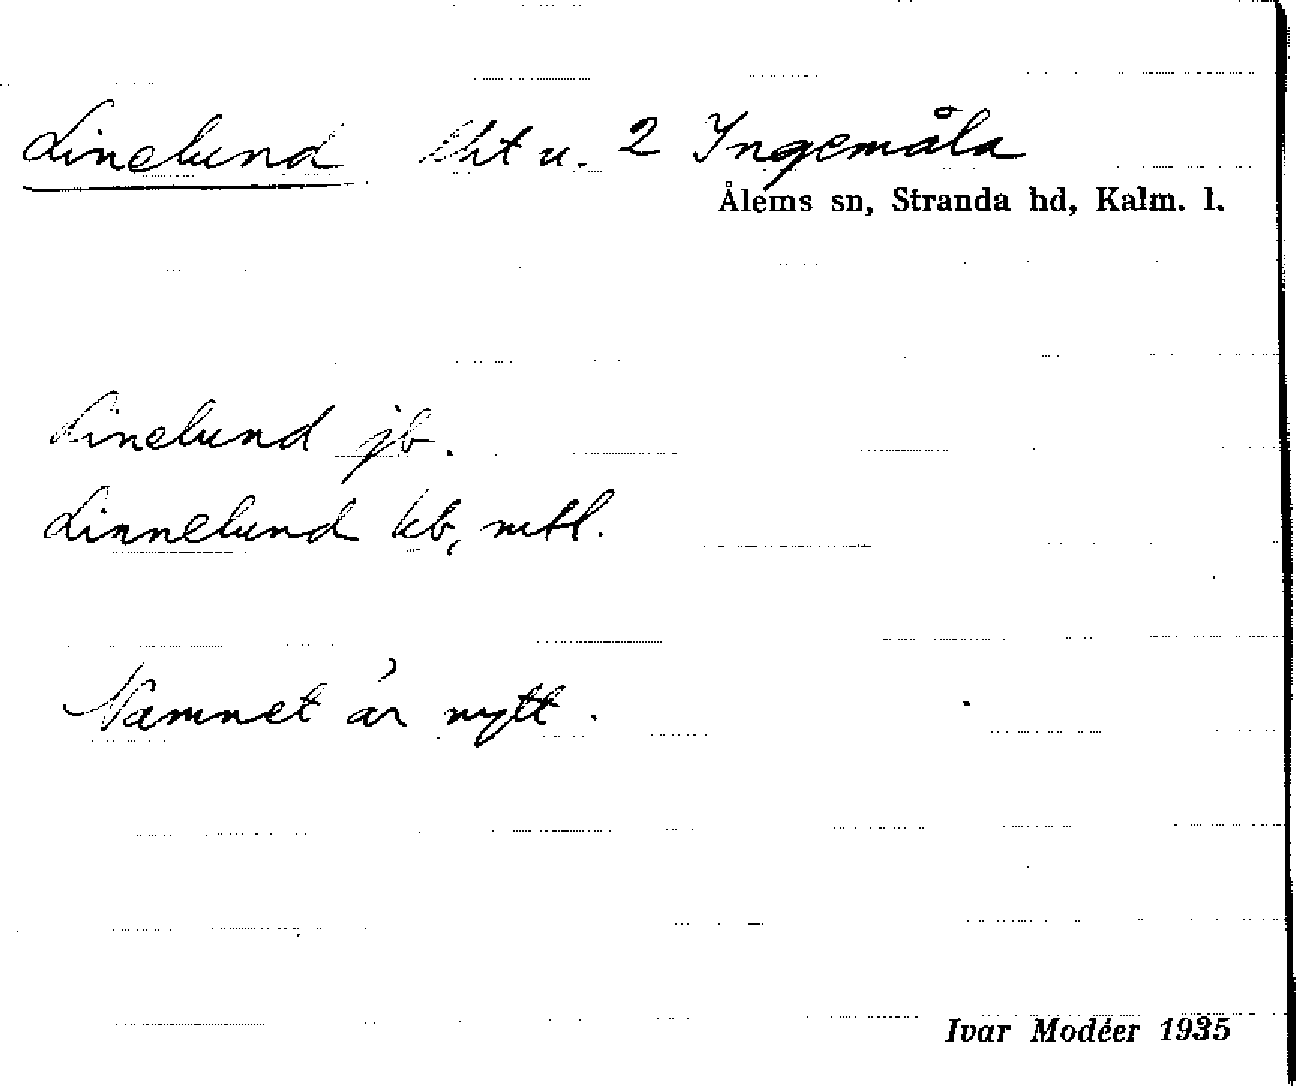 Linelund lht u. 2 Ingemåla
Ålems sn, Stranda hd, Kalm. l.
Linelund jb.
Linnelund kb, mtl.
Namnet är nytt.
Ivar Modéer 1935